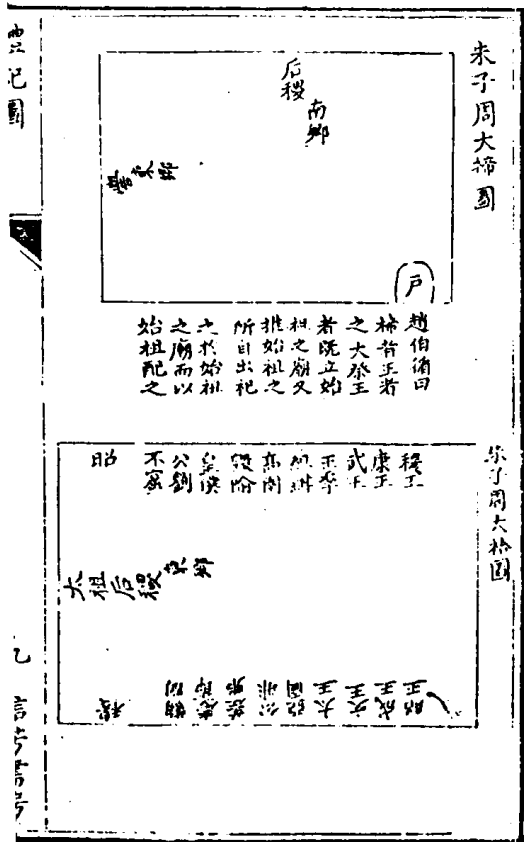 朱子周大禘圖
后稷
南鄉
嚳東鄉
戶
趙伯循曰
禘者王者
之大祭王
者既立始
祖之廟又
推始祖之
所自出祀
之於始祖
之廟而以
始祖配之
朱子周大祫圖
穆王
康王
武王
王季
組紺
高圉
毀隃
皇僕
公劉
不窋
昭
太祖后稷東鄉
昭王
成王
文王
太王
亞圉
公非
慶節
穆